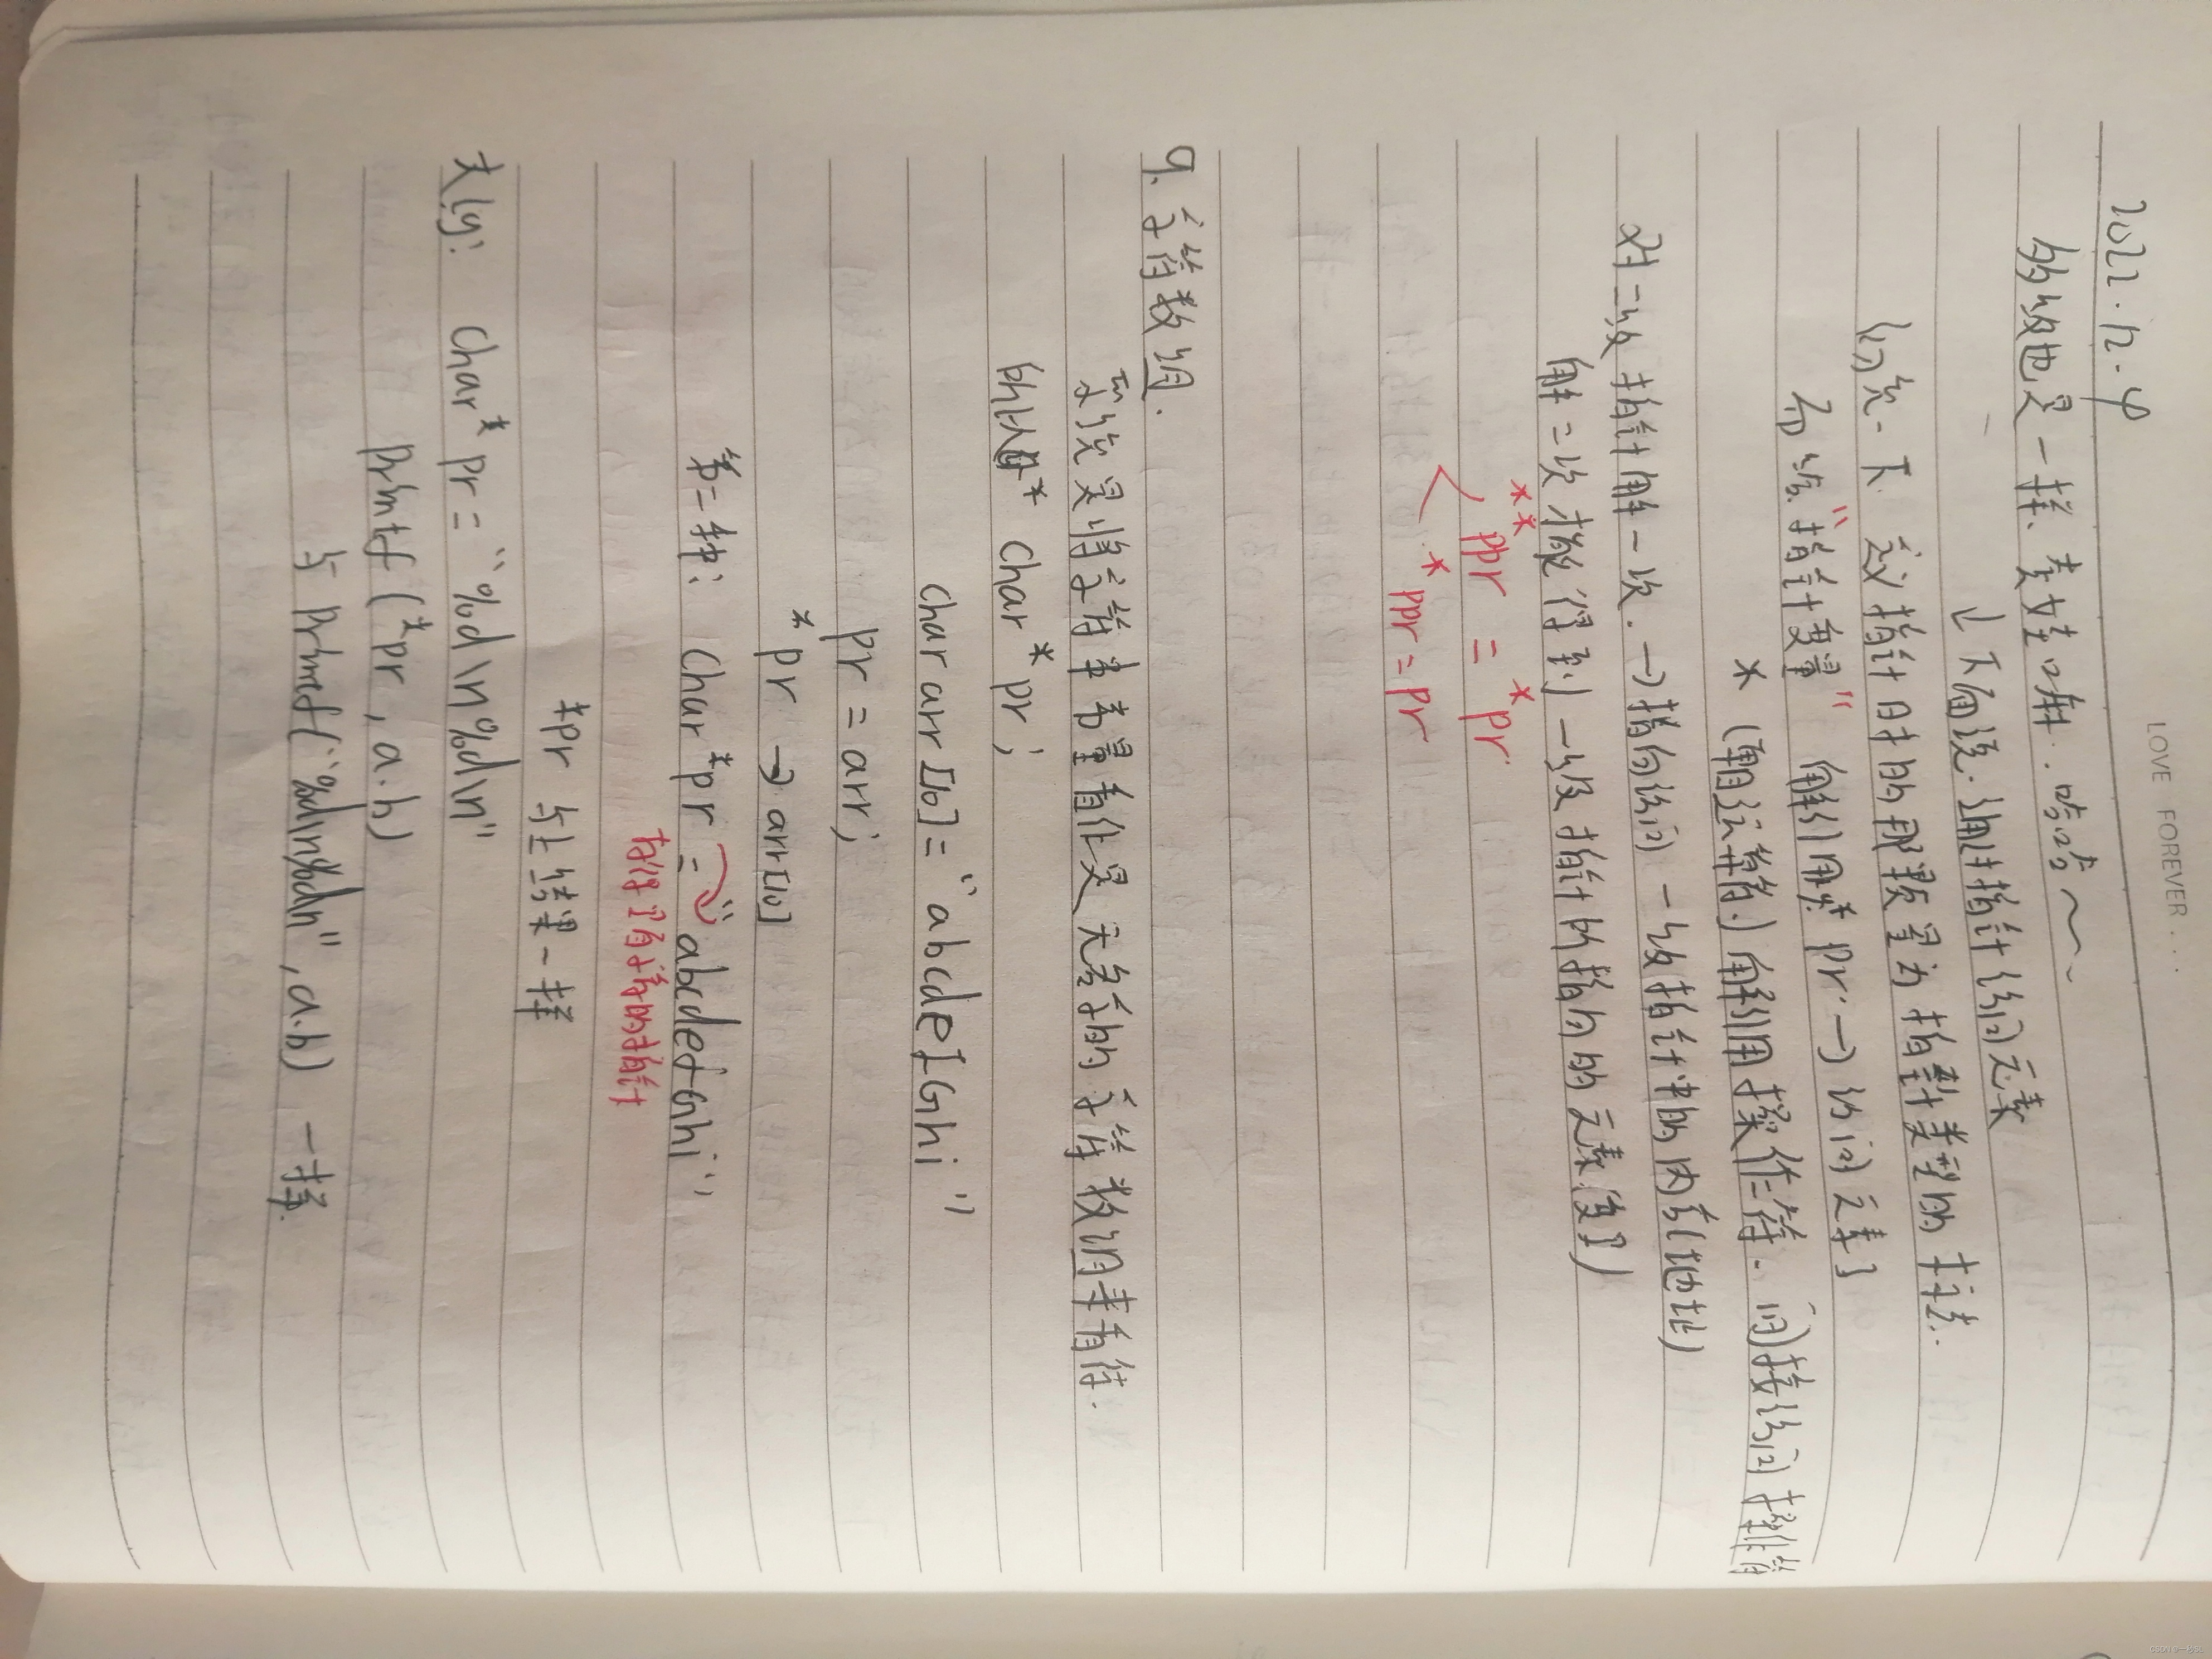 LOVE FOREVER...
2022.12.4
多级也是一样、套娃嘛..哈哈~~~
↓下面说.通过指针访问元素
(区分一下 定义指针时的那颗星为 指针类型的 写法.
而 "指针变量" 解引用 *pr. → 访问元素)
* (单目运算符.) 解引用操作符. 间接访问操作符
对二级指针解一次. → 指向访问 一级指针中的内容(地址)
解二次才能得到 一级指针所指向的元素(变量)
**ppr = *pr
*ppr = pr
9. 字符数组.
系统是将字符串常量看作是 无名字的 字符数组来看待.
所以 char* pr;
char arr[10] = "abcdefGhi"
pr = arr;
*pr → arr[10]
第二种: char *pr = "abcdefGhi"
*pr 与上结果一样
大佬: char* pr = "%d\n%d\n"
printf (*pr, a.b)
与 printf("%d\n%d\n", a.b) 一样.